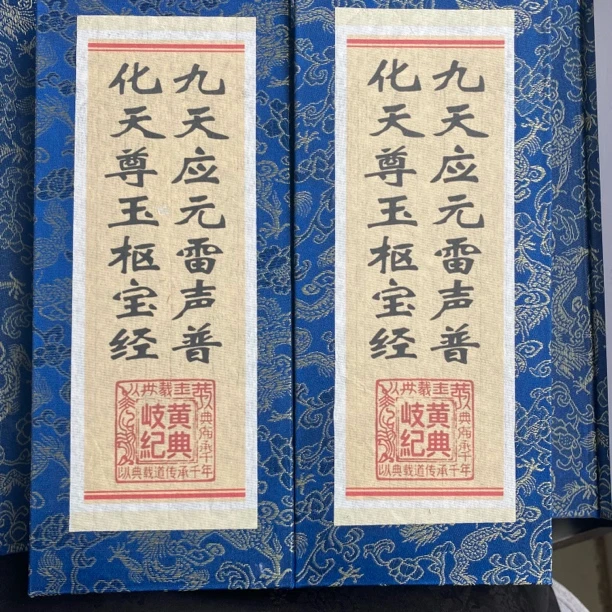 九天应元雷声普
化天尊玉枢宝经
黄典
岐纪
以典载道传承千年
九天应元雷声普
化天尊玉枢宝经
黄典
岐纪
以典载道传承千年